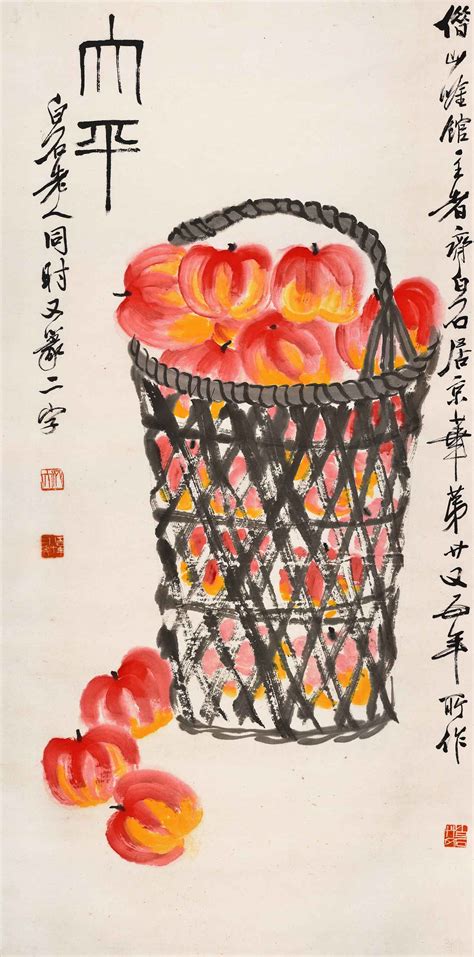 借山唫館主者齊白石居京華第廿又五年所作
大平
白石老人同時又篆二字